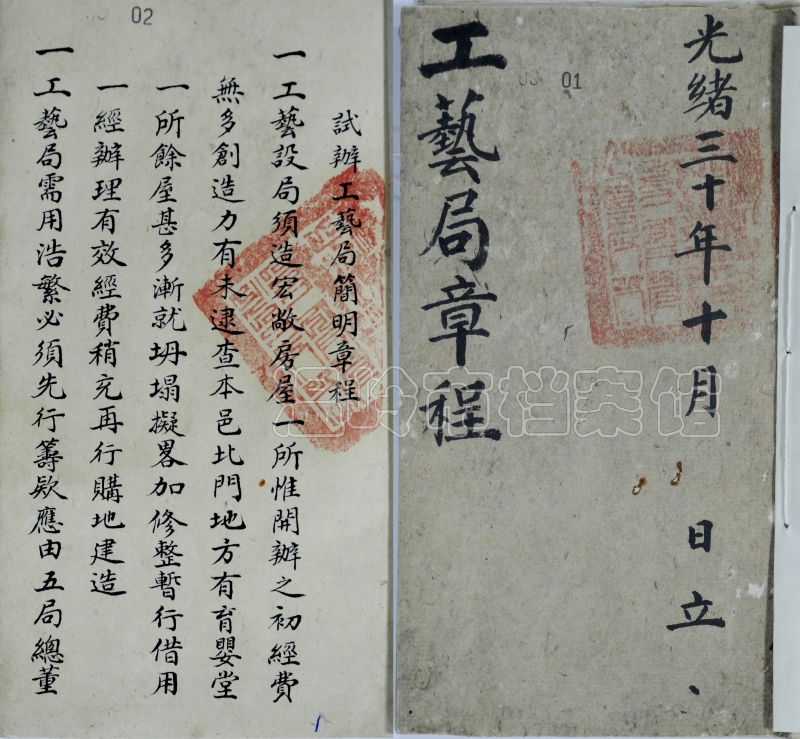 光緒三十年十月 日立
工藝局章程
01
02
試辦工藝局簡明章程
一工藝設局須造宏敞房屋一所惟開辦之初經費
無多創造力有未逮查本邑北門地方有育嬰堂
一所餘屋甚多漸就坍塌擬畧加修整暫行借用
一經辦理有效經費稍充再行購地建造
一工藝局需用浩繁必須先行籌欵應由五局總董
1
温岭市档案馆